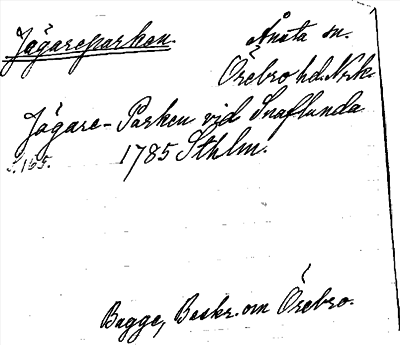 Jägareparken.
Ånsta sn.
Örebro hd. Nrke.
Jägare-Parken vid Snaflunda
s. 155. 1785 Sthlm.
Bagge, Beskr. om Örebro.